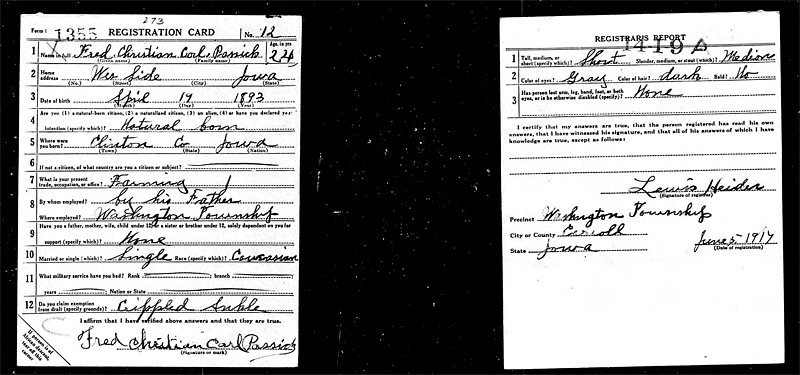 273
Form 1 1355 REGISTRATION CARD No. 12
1 Name in full Fred Christian Carl Passick Age, in yrs 24
(Given name) (Family name)
2 Home address Wes Side Iowa
(No.) (Street) (City) (State)
3 Date of birth April 19 1893
(Month) (Day) (Year)
4 Are you (1) a natural-born citizen, (2) a naturalized citizen, (3) an alien, (4) or have you declared your
intention (specify which)? Natural born
5 Where were you born? Clinton Co Iowa
(Town) (State) (Nation)
6 If not a citizen, of what country are you a citizen or subject?
7 What is your present trade, occupation, or office? Farming
8 By whom employed? by his Father
Where employed? Washington Township
9 Have you a father, mother, wife, child under 12, or a sister or brother under 12, solely dependent on you for
support (specify which)? None
10 Married or single (which)? Single Race (specify which)? Caucasian
11 What military service have you had? Rank ; branch
years ; Nation or State
12 Do you claim exemption from draft (specify grounds)? Crippled Ankle
I affirm that I have verified above answers and that they are true.
Fred Christian Carl Passick
(Signature or mark)
If person is of
African descent,
tear off this
corner
REGISTRARS REPORT
1419 A
1 Tall, medium, or short (specify which)? Short Slender, medium, or stout (which)? Medium
2 Color of eyes? Gray Color of hair? dark Bald? No
3 Has person lost arm, leg, hand, foot, or both
eyes, or is he otherwise disabled (specify)? None
I certify that my answers are true, that the person registered has read his own
answers, that I have witnessed his signature, and that all of his answers of which I have
knowledge are true, except as follows:
Lewis Heiden
(Signature of registrar)
Precinct Washington Township
City or County Carroll
State Iowa June 5 1917
(Date of registration)